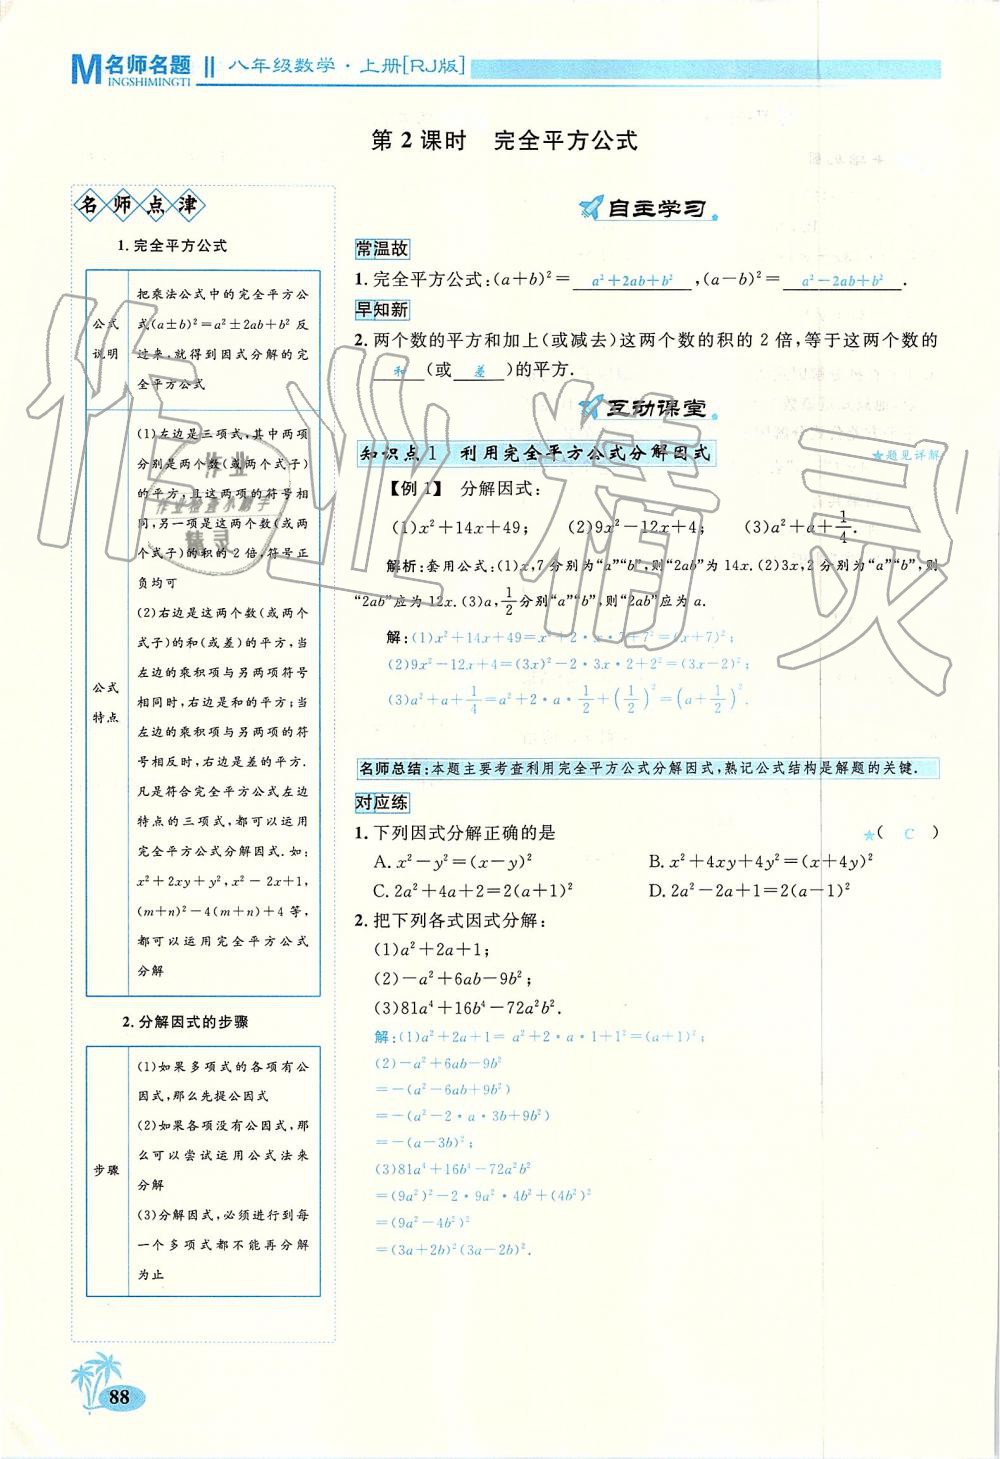 M名师名题 八年级数学·上册[RJ版]
INGSHIMINGTI
第2课时 完全平方公式
名师点津
1.完全平方公式
公式说明
把乘法公式中的完全平方公
式(a±b)²=a²±2ab+b²反
过来,就得到因式分解的完
全平方公式
公式特点
(1)左边是三项式,其中两项
分别是两个数(或两个式子)
的平方,且这两项的符号相
同,另一项是这两个数(或两
个式子)的积的2倍,符号正
负均可
(2)右边是这两个数(或两个
式子)的和(或差)的平方,当
左边的乘积项与另两项符号
相同时,右边是和的平方;当
左边的乘积项与另两项的符
号相反时,右边是差的平方.
凡是符合完全平方公式左边
特点的三项式,都可以运用
完全平方公式分解因式.如:
x²+2xy+y²,x²-2x+1,
(m+n)²-4(m+n)+4等,
都可以运用完全平方公式
分解
2.分解因式的步骤
步骤
(1)如果多项式的各项有公
因式,那么先提公因式
(2)如果各项没有公因式,那
么可以尝试运用公式法来
分解
(3)分解因式,必须进行到每
一个多项式都不能再分解
为止
88
自主学习
常温故
1.完全平方公式:(a+b)²= a²+2ab+b² ,(a-b)²= a²-2ab+b² .
早知新
2.两个数的平方和加上(或减去)这两个数的积的2倍,等于这两个数的
和 (或 差 )的平方.
互动课堂
知识点1 利用完全平方公式分解因式 ★题见详解
【例1】 分解因式:
(1)x²+14x+49; (2)9x²-12x+4; (3)a²+a+1/4.
解析:套用公式:(1)x,7分别为“a”“b”,则“2ab”为14x.(2)3x,2分别为“a”“b”,则
“2ab”应为12x.(3)a,1/2分别“a”“b”,则“2ab”应为a.
解:(1)x²+14x+49=x²+2·x·7+7²=(x+7)²;
(2)9x²-12x+4=(3x)²-2·3x·2+2²=(3x-2)²;
(3)a²+a+1/4=a²+2·a·1/2+(1/2)²=(a+1/2)².
名师总结:本题主要考查利用完全平方公式分解因式,熟记公式结构是解题的关键.
对应练
1.下列因式分解正确的是 ★( C )
A.x²-y²=(x-y)² B.x²+4xy+4y²=(x+4y)²
C.2a²+4a+2=2(a+1)² D.2a²-2a+1=2(a-1)²
2.把下列各式因式分解:
(1)a²+2a+1;
(2)-a²+6ab-9b²;
(3)81a⁴+16b⁴-72a²b².
解:(1)a²+2a+1= a²+2·a·1+1²=(a+1)²;
(2)-a²+6ab-9b²
=-(a²-6ab+9b²)
=-(a²-2·a·3b+9b²)
=-(a-3b)²;
(3)81a⁴+16b⁴-72a²b²
=(9a²)²-2·9a²·4b²+(4b²)²
=(9a²-4b²)²
=(3a+2b)²(3a-2b)².
作业精灵
作业
作业检查小助手
精灵